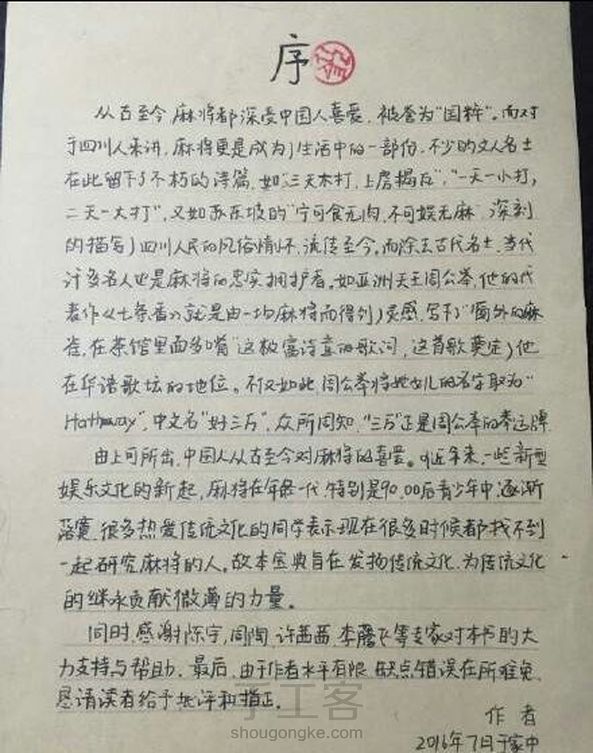 序
从古至今麻将都深受中国人喜爱，被誉为"国粹"。而对
于四川人来讲，麻将更是成为了生活中的一部份，不少的文人名士
在此留下了不朽的诗篇，如"三天不打，上房揭瓦"，"一天一小打，
二天一大打"，又如苏东坡的"宁可食无肉，不可娱无麻"，深刻
的描写了四川人民的风俗情怀，流传至今。而除去古代名士，当代
许多名人也是麻将的忠实拥护者。如亚洲天王周公举，他的代
表作《七条香》就是由一场麻将而得到了灵感，写下了"窗外的麻
雀，在茶馆里面多嘴"这极富诗意的歌词，这首歌奠定了他
在华语歌坛的地位。不仅如此，周公举将她女儿的名字取为"
Hathaway"，中文名"好三万"，众所周知，"三万"正是周公举的幸运牌
由上可所出，中国人从古至今对麻将的喜爱。近年来，一些新型
娱乐文化的新起，麻将在年轻一代，特别是90,00后青少年中，逐渐
落寞，很多热爱传统文化的同学表示现在很多时候都找不到
一起研究麻将的人。故本宝典旨在发扬传统文化，为传统文化
的继承贡献微薄的力量。
同时，感谢陈宇，周陶，许茜茜，李腾飞等专家对本书的大
力支持与帮助。最后，由于作者水平有限，缺点错误在所难免，
恳请读者给予批评和指正。
作者
2016年7日于家中
手工客
shougongke.com